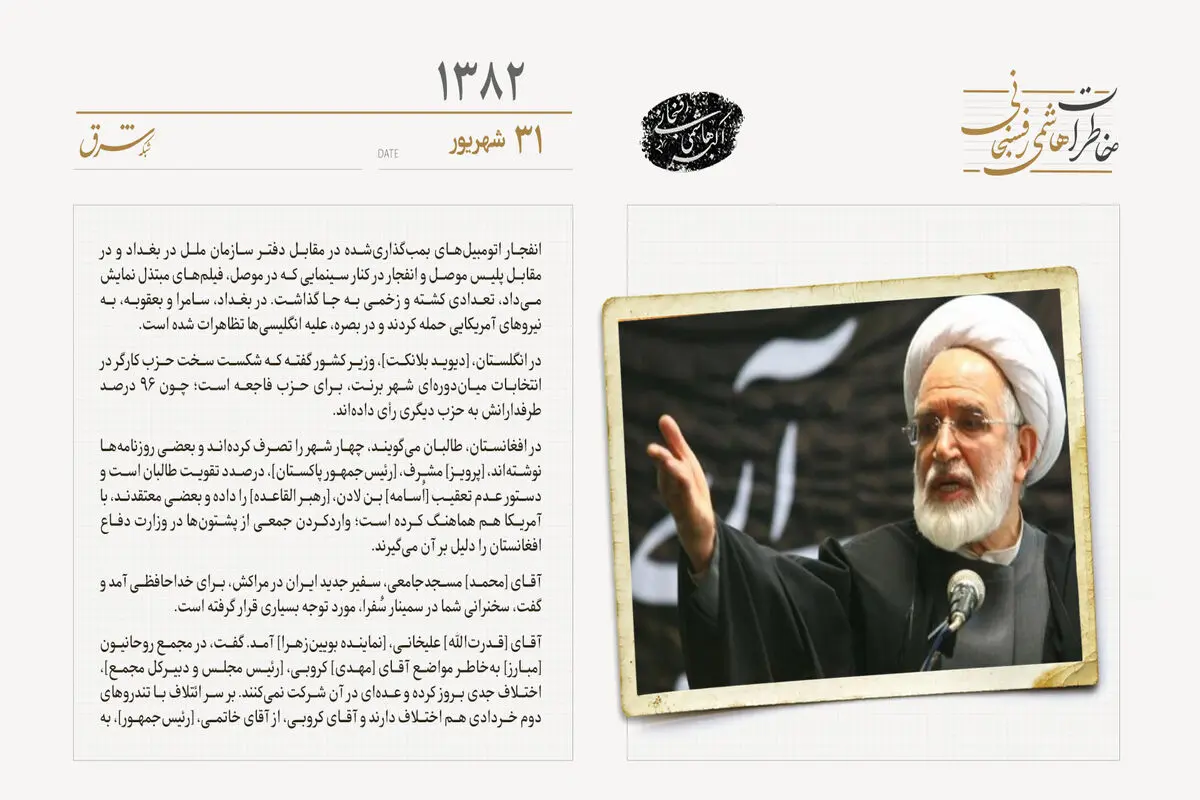 خاطرات
هاشمی رفسنجانی
اکبر هاشمی رفسنجانی
۱۳۸۲
۳۱ شهریور
DATE
شبکه شرق
انفجار اتومبیل‌های بمب‌گذاری‌شده در مقابل دفتر سازمان ملل در بغداد و در
مقابل پلیس موصل و انفجار در کنار سینمایی که در موصل، فیلم‌های مبتذل نمایش
می‌داد، تعدادی کشته و زخمی به جا گذاشت. در بغداد، سامرا و بعقوبه، به
نیروهای آمریکایی حمله کردند و در بصره، علیه انگلیسی‌ها تظاهرات شده است.
در انگلستان، [دیوید بلانکت]، وزیر کشور گفته که شکست سخت حزب کارگر در
انتخابات میان‌دوره‌ای شهر برنت، برای حزب فاجعه است؛ چون ۹۶ درصد
طرفدارانش به حزب دیگری رأی داده‌اند.
در افغانستان، طالبان می‌گویند، چهار شهر را تصرف کرده‌اند و بعضی روزنامه‌ها
نوشته‌اند، [پرویز] مشرف، [رئیس‌جمهور پاکستان]، درصدد تقویت طالبان است و
دستور عدم تعقیب [اُسامه] بن لادن، [رهبر القاعده] را داده و بعضی معتقدند، با
آمریکا هم هماهنگ کرده است؛ واردکردن جمعی از پشتون‌ها در وزارت دفاع
افغانستان را دلیل بر آن می‌گیرند.
آقای [محمد] مسجدجامعی، سفیر جدید ایران در مراکش، برای خداحافظی آمد و
گفت، سخنرانی شما در سمینار سُفرا، مورد توجه بسیاری قرار گرفته است.
آقای [قدرت‌الله] علیخانی، [نماینده بویین‌زهرا] آمد. گفت، در مجمع روحانیون
[مبارز] به‌خاطر مواضع آقای [مهدی] کروبی، [رئیس مجلس و دبیرکل مجمع]،
اختلاف جدی بروز کرده و عده‌ای در آن شرکت نمی‌کنند. بر سر ائتلاف با تندروهای
دوم خردادی هم اختلاف دارند و آقای کروبی، از آقای خاتمی، [رئیس‌جمهور]، به